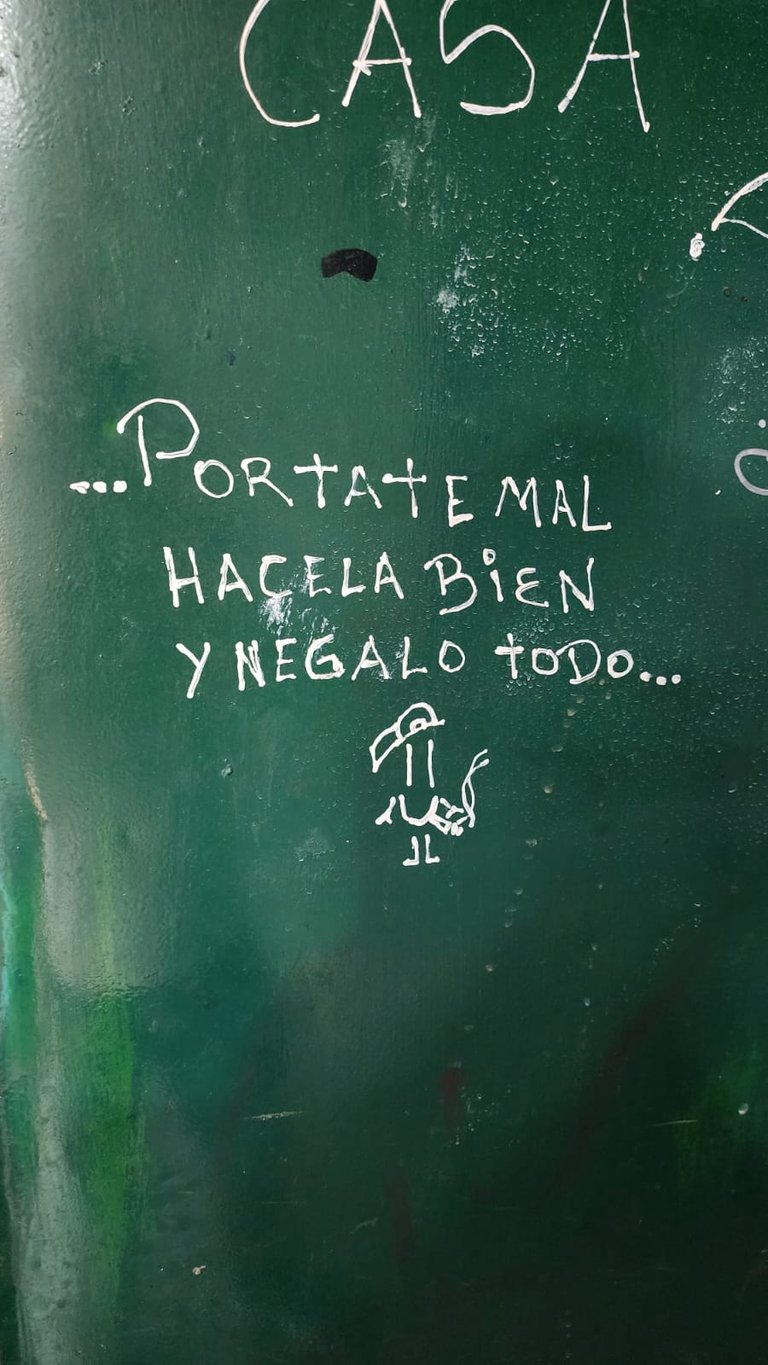 CASA
...PORTATE MAL
HACELA BIEN
Y NEGALO TODO...